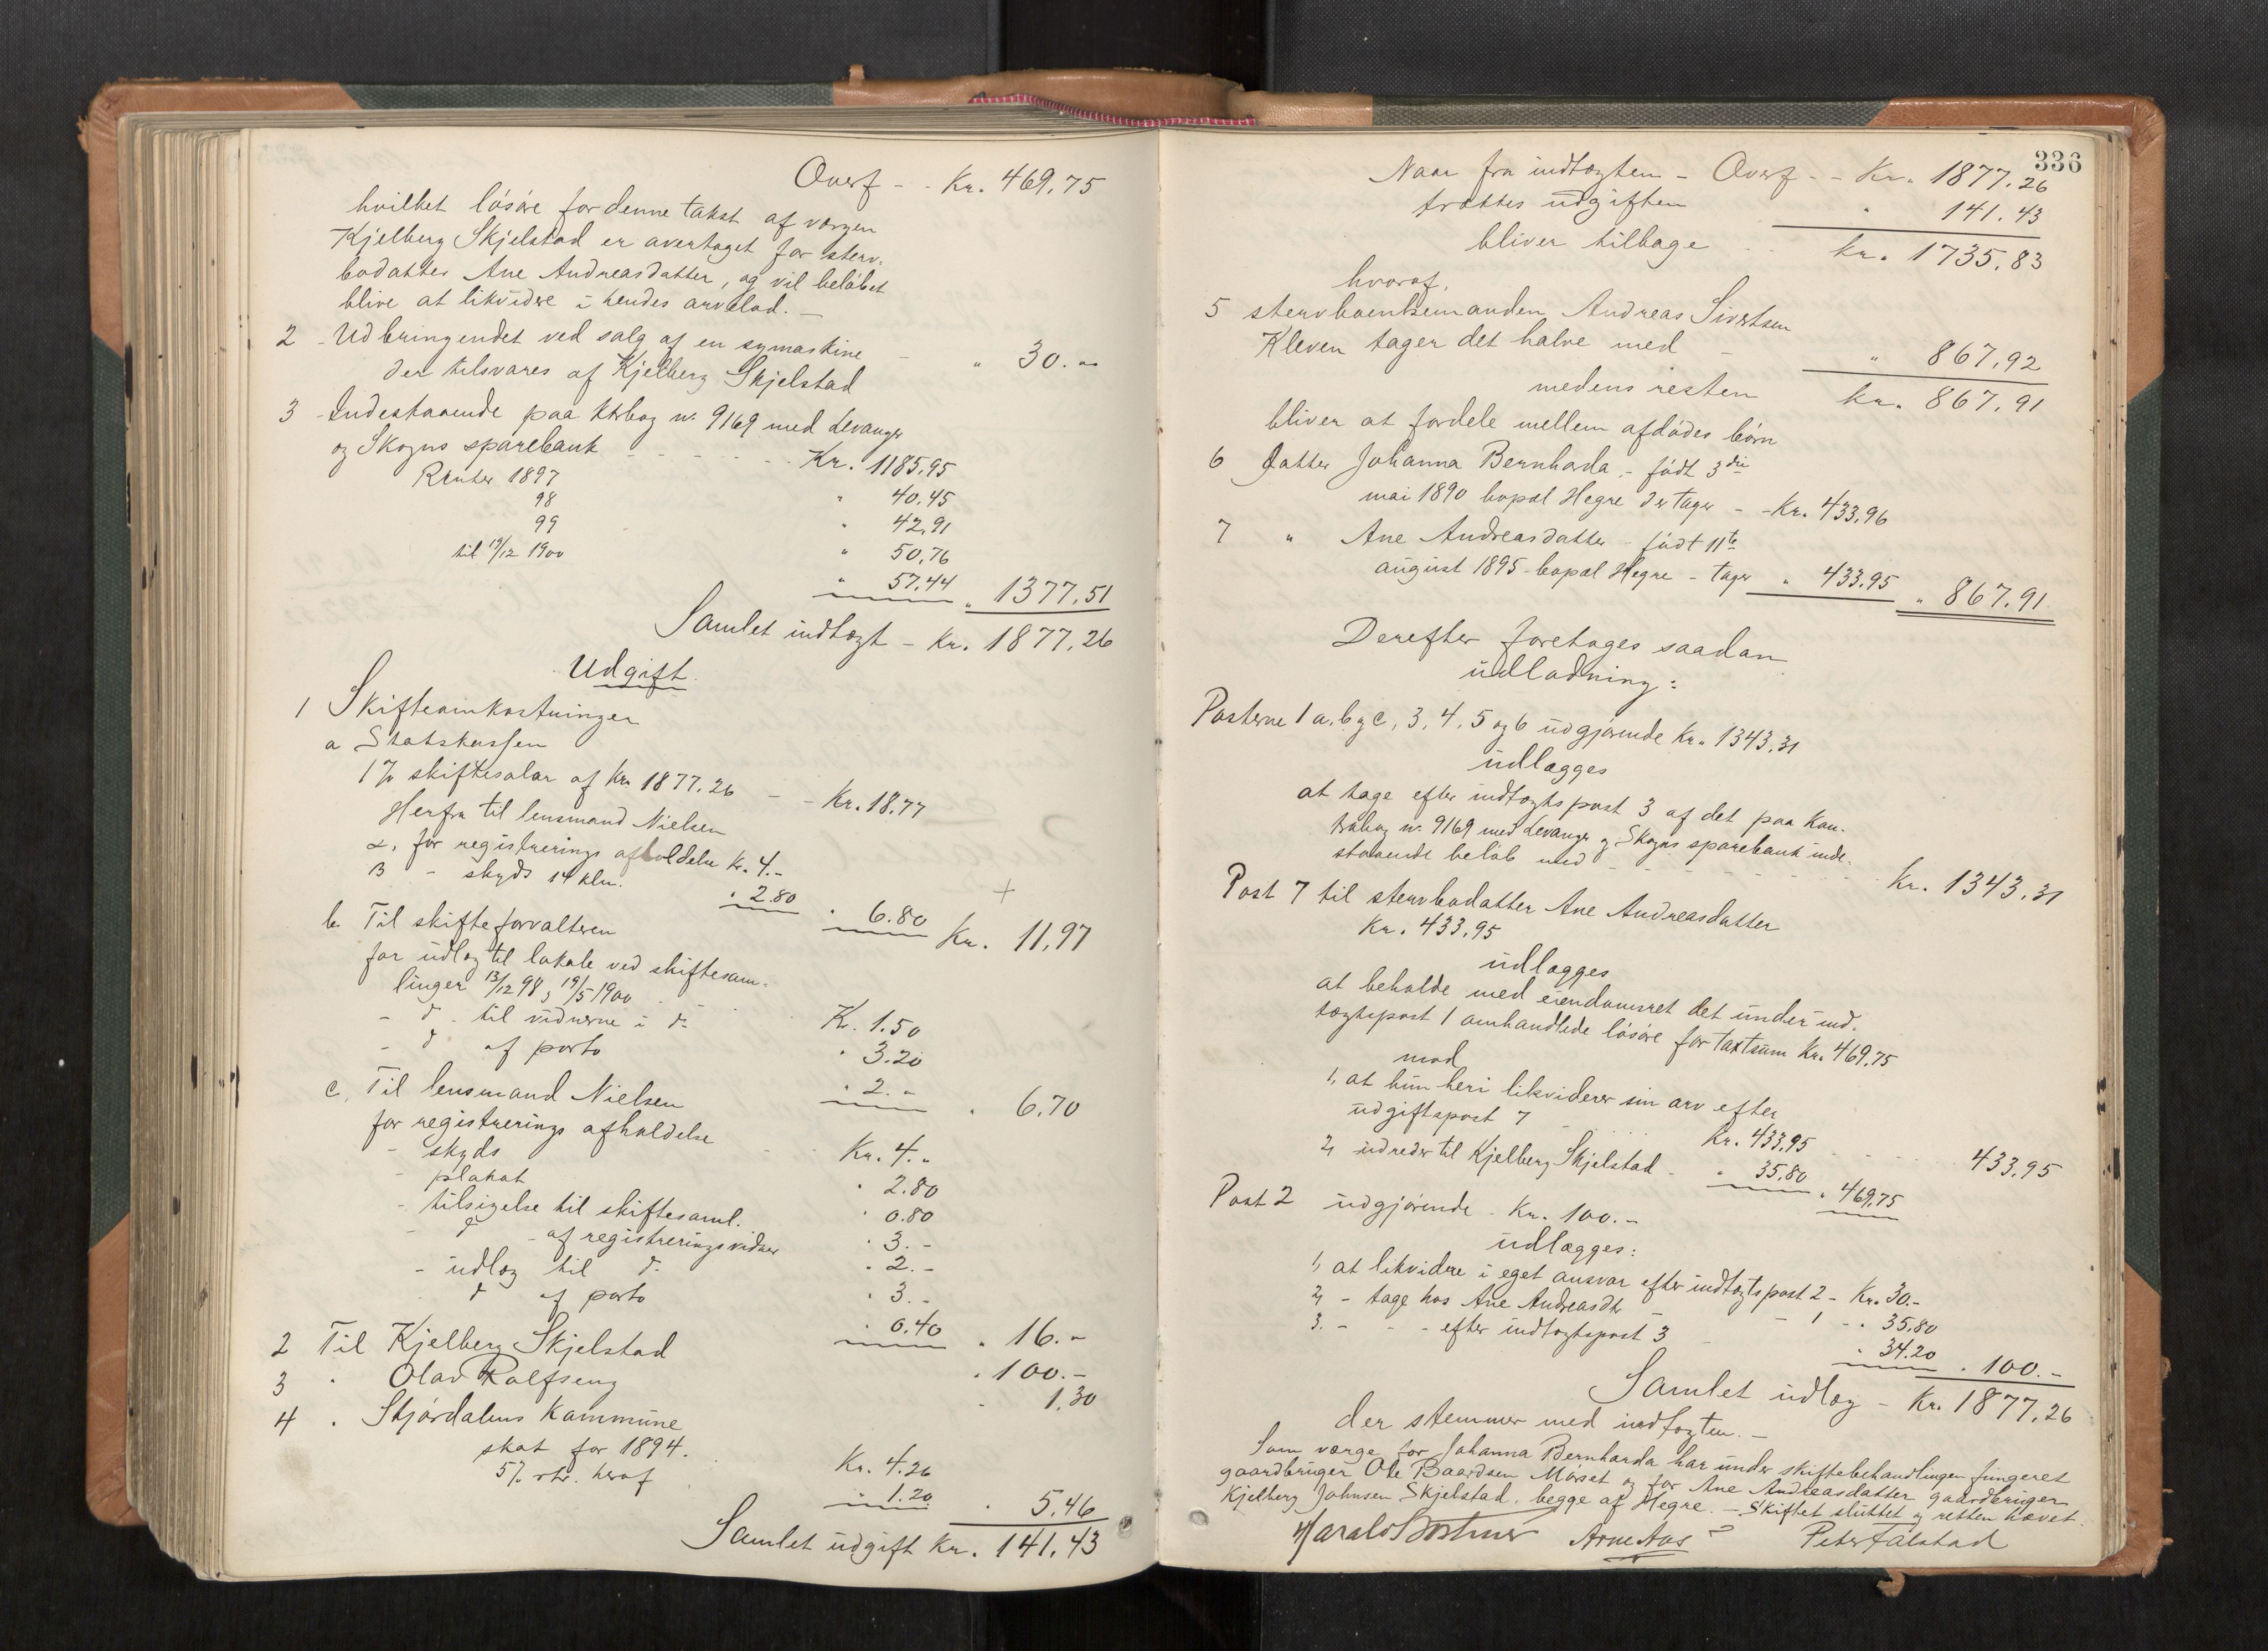 Overf - - Kr. 469,75
hvilket løsøre for denne takst af værgen
Kjelberg Skjelstad er overtaget for sterv-
bodatter Ane Andreasdatter, og vil beløbet
blive at likvidere i hendes arvelod. -
2 - Udbringendet ved salg af en symaskine -
der tilsvares af Kjelberg Skjelstad " 30. -
3 - Indestaaende paa ktrbog nr. 9169 med Levanger
og Skogns sparebank - - - - - Kr. 1185,95
Renter 1897 " 40.45
98 " 42,91
99 " 50,76
til 19/12 1900 " 57,44 " 1377,51
Samlet indtægt - Kr. 1877,26
Udgift.
1 Skifteomkostninger
a Statskassen
1 % skiftesalær af Kr. 1877.26 - - Kr. 18.77
Herfra til lensmand Nielsen
α, for registrerings afholdelse Kr. 4.-
β - skyds 14 klm. " 2.80 " 6.80 Kr. 11,97
b. Til skifteforvalteren
for udlæg til lokale ved skiftesam-
linger 13/12 98, 19/5 1900 Kr. 1.50
- d. til vidnerne i do " 3.20
- d. af porto " 2. - " 6.70
c. Til lensmand Nielsen
for registrerings afholdelse Kr. 4. -
- skyds " 2.80
- plakat " 0.80
- tilsigelse til skiftesaml. " 3. -
- d - af registreringsvidner " 2. -
- udlæg til d. " 3. -
d af porto " 0.40 " 16. -
2 Til Kjelberg Skjelstad " 100. -
3 " Olav Rolfseng - 1,30
4 " Stjørdalens Kommune
skat for 1894. Kr. 4.26
5% rtr. heraf " 1.20 " 5.46
Samlet udgift Kr. 141,43
336
Naar fra indtægten - Overf - - Kr. 1877,26
trættes udgiften " 141,43
bliver tilbage - - Kr. 1735,83
hvoraf,
5 stervboenkemanden Andreas Sivertsen
Kleven tager det halve med - " 867,92
medens resten Kr. 867,91
bliver at fordele mellem afdødes børn
6 Datter Johanna Bernharda - født 3die
mai 1890 bopæl Hegre der tager - - Kr. 433,96
7 " Ane Andreasdatter - født 11te
august 1895 - bopæl Hegre - tager " 433,95 " 867,91
Derefter foretages saadan
udlodning:
Posterne 1 a, b og c, 3, 4, 5 og 6 udgjørende Kr. 1343,31
udlægges
at tage efter indtægtspost 3 af det paa kon-
trabog nr. 9169 med Levanger og Skogns sparebank inde-
staaende beløb med - - - - - Kr. 1343,31
Post 7 til stervbodatter Ane Andreasdatter
Kr. 433,95
udlægges
at beholde med eiendomsret det under ind-
tægtspost 1 omhandlede løsøre for taxtsum Kr. 469,75
mod
1, at hun heri likviderer sin arv efter
udgiftspost 7 - Kr. 433,95 - - - 433,95
2, udreder til Kjelberg Skjelstad - " 35,80 " 469,75
Post 2 udgjørende - Kr. 100. -
udlægges:
1, at likvidere i eget ansvar efter indtægtspost 2 - Kr. 30.-
2, - tage hos Ane Andreasdtr - - 1 - " 35,80
3. - - - efter indtægtspost 3 " 34.20 " 100. -
Samlet udlæg - Kr. 1877,26
der stemmer med indtægten. -
Som værge for Johanna Bernharda har under skiftebehandlingen fungeret
gaardbruger Ole Baardsen Mørset og for Ane Andreasdatter gaardbruger
Kjelberg Johnsen Skjelstad, begge af Hegre. - Skiftet sluttet og retten hævet.
Harald Bothner Arne Aas Peter Falstad